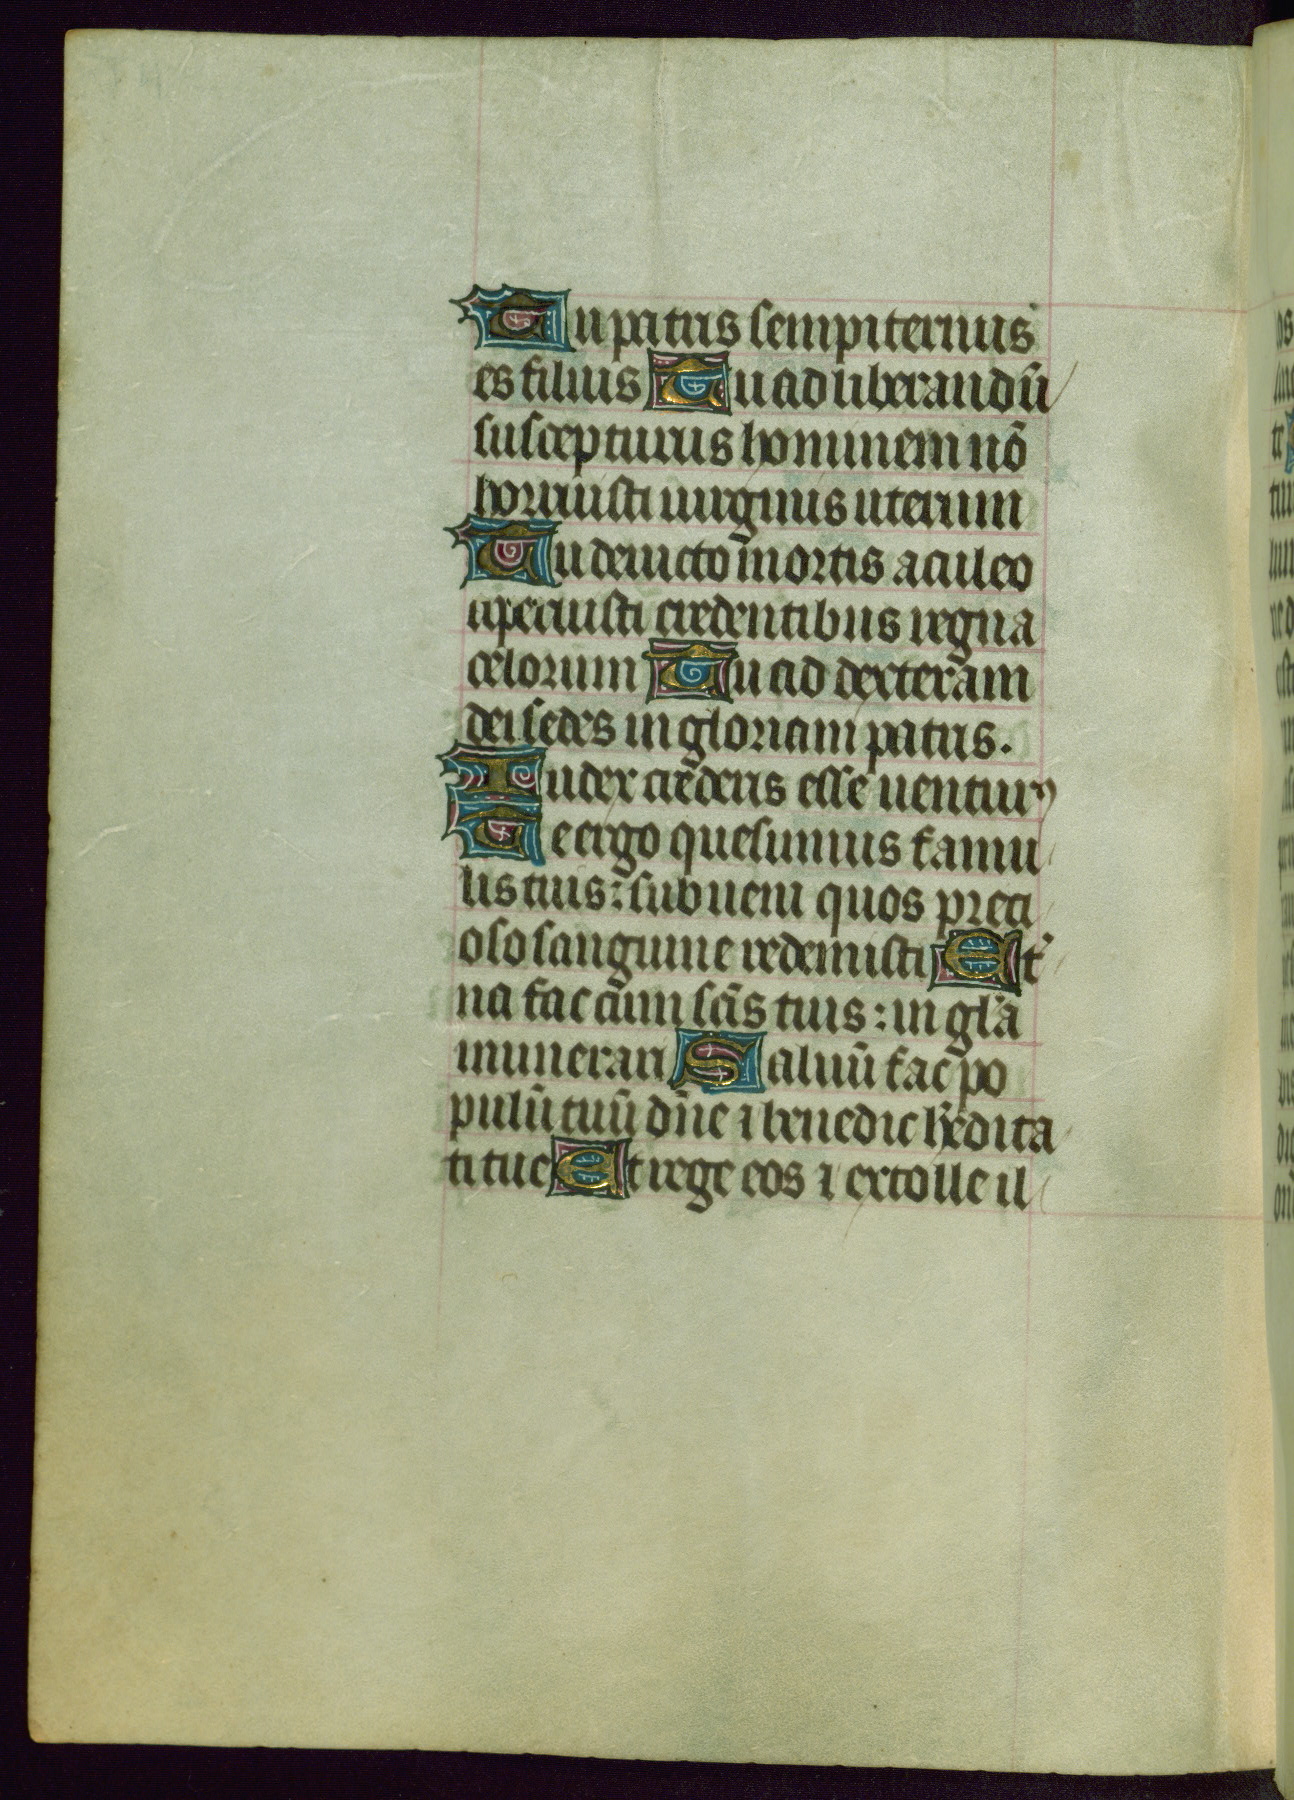 Tu patris sempiternus
es filius Tu ad liberandū
suscepturus hominem nō
horruisti uirginis uterum
Tu deuicto mortis aculeo
aperuisti credentibus regna
celorum Tu ad dexteram
dei sedes in gloriam patris.
Iudex crederis esse uenturꝰ
Te ergo quesumus famu
lis tuis: subueni quos preci
oso sanguine redemisti Et̾
na fac cum scīs tuis: in gl̾a
munerari Saluū fac po
pulū tuū dn̄e ⁊ benedic h̾edita
ti tue Et rege eos ⁊ extolle il